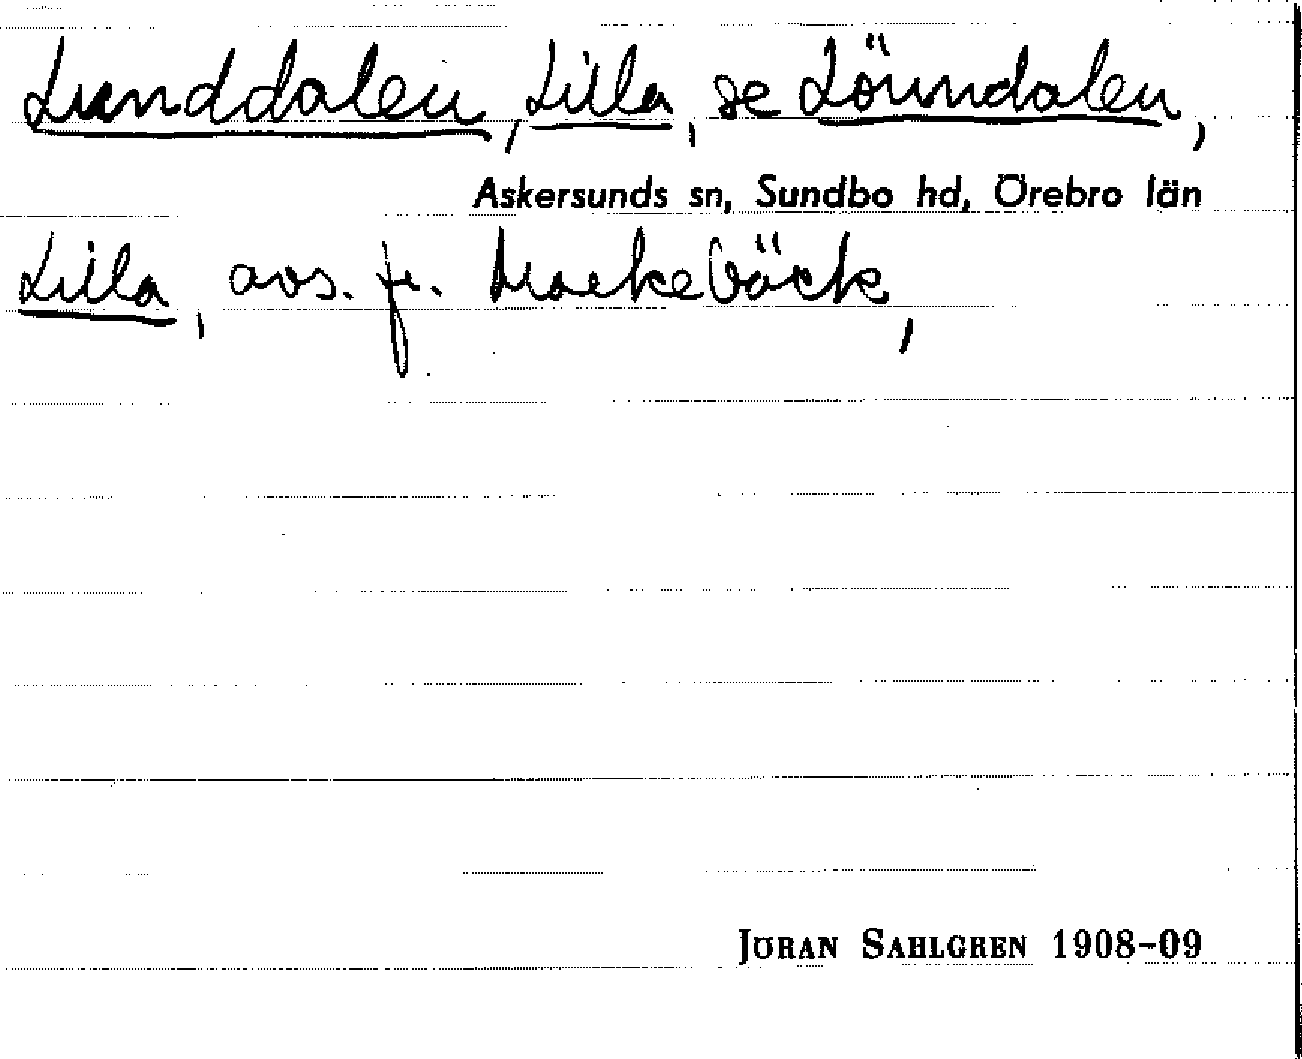 Lunddalen, Lilla, se Lönndalen,
Askersunds sn, Sundbo hd, Örebro län
Lilla, avs. fr.
JÖRAN SAHLGREN 1908-09